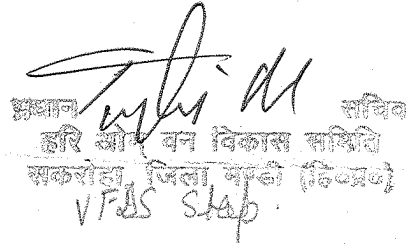 प्रधान सचिव
हरि ओम वन विकास समिति
सकरोहा, जिला मण्डी (हि०प्र०)
VFDS